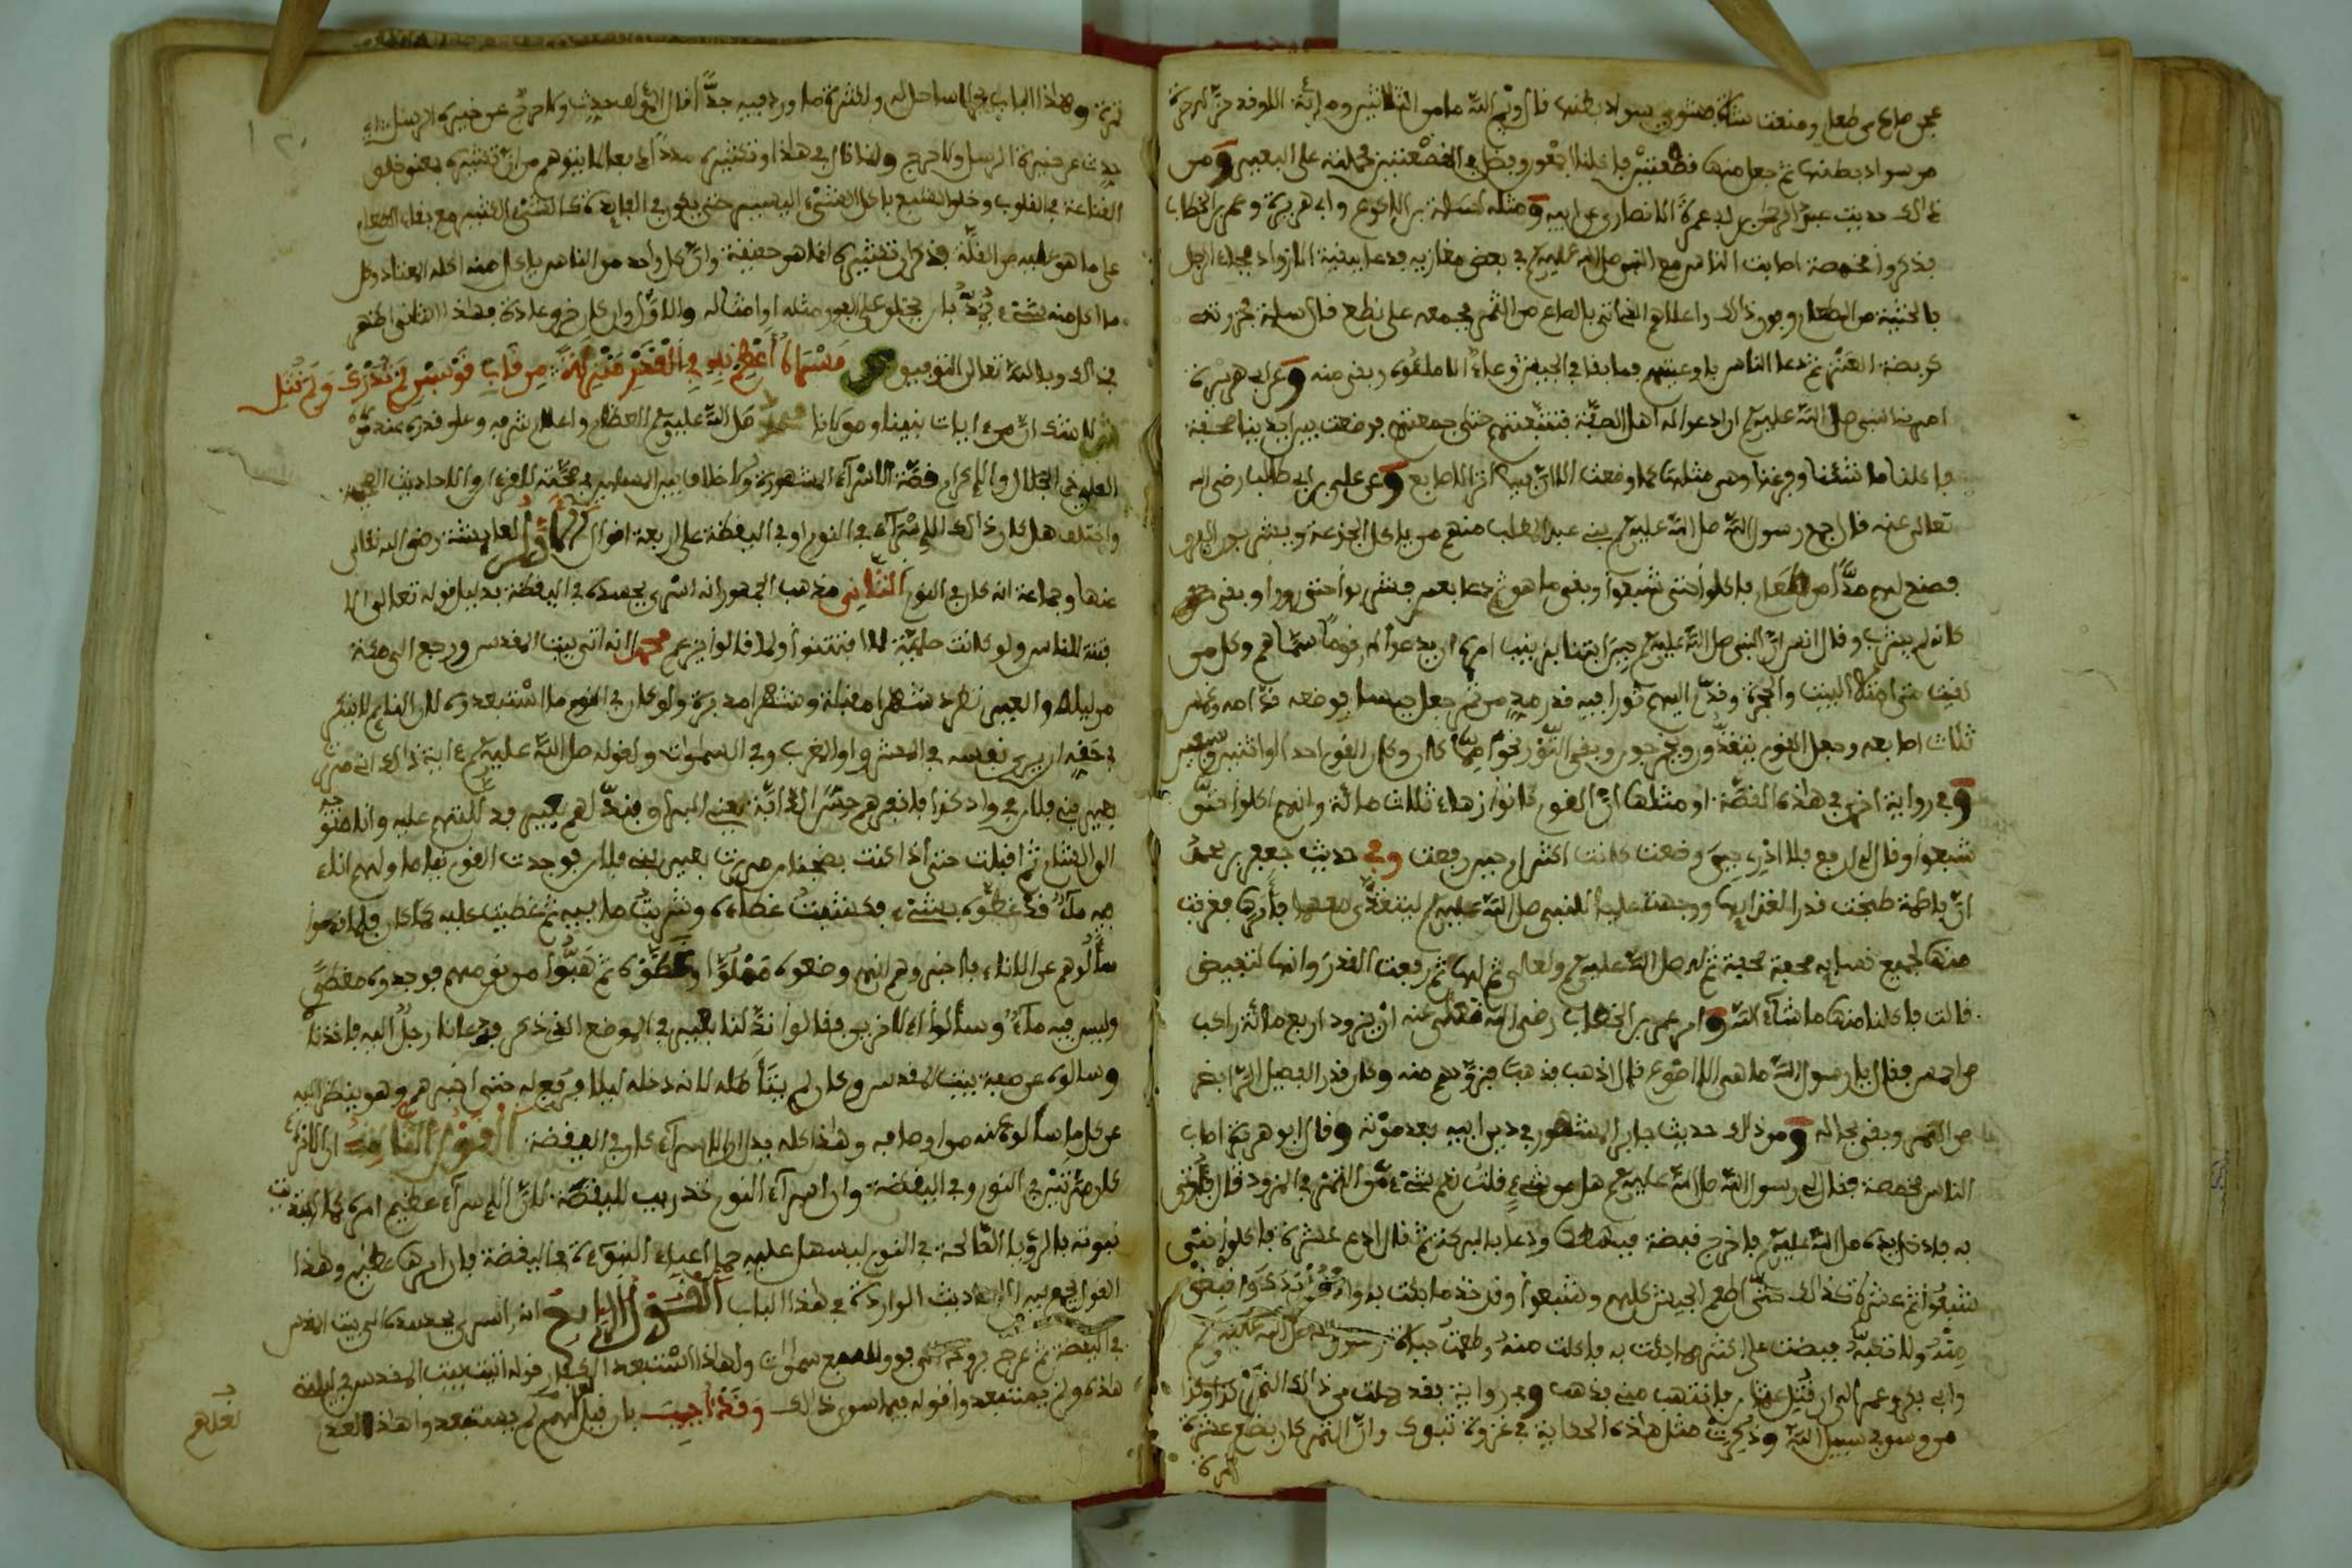 عجن صاع من طعام وصنعت شاة فشوي سواد بطنها قال وأيم الله ما من الثلاثين ومائة إلا وقد حز له حزة
من سواد بطنها ثم جعل منها قصعتين فأكلنا أجمعون وفضل في القصعتين فحملته على البعير ومن
ذالك حديث عبد الرحمن بن أبي عمرة الأنصاري عن أبيه ومثله لسلمة بن الأكوع وأبي هريرة وعمر بن الخطاب
فذكروا مخمصة أصابت الناس مع النبي صلى الله عليه وسلم في بعض مغازيه فدعا ببقية الأزواد فجاء الرجل
بالحثية من الطعام وفوق ذالك وأعلاهم الذي أتى بالصاع من التمر فجمعه على نطع قال سلمة فحزرته
كربضة العنز ثم دعا الناس بأوعيتهم فما بقي في الجيش وعاء إلا ملئوه وبقي منه وعن أبي هريرة
أمرني النبي صلى الله عليه وسلم أن أدعو له أهل الصفة فتتبعتهم حتى جمعتهم فوضعت بين أيدينا صحفة
فأكلنا ما شئنا وفرغنا وهي مثلها كما وضعت إلا أن فيها أثر الأصابع وعن علي بن أبي طالب رضي الله
تعالى عنه قال جمع رسول الله صلى الله عليه وسلم بني عبد المطلب منهم من يأكل الجذعة ويشربون الفرق
فصنع لهم مدا من طعام فأكلوا حتى شبعوا وبقي ما هو ثم دعا بعس فشربوا حتى رووا وبقي
كأنه لم يشرب وقال أنس أن النبي صلى الله عليه وسلم حين ابتنا بزينب أمره أن يدعو له قوما سماهم وكل من
لقيت حتى امتلأ البيت والحجرة وقدم إليهم تورا فيه قدر مد من تمر جعل حيسا فوضعه قدامه وغمس
ثلاث أصابعه وجعل القوم يتغدون ويخرجون وبقي التور نحوا مما كان وكان القوم أحد أو اثنين وسبعين
وفي رواية أخرى في هاذه القصة أو مثلها أن القوم كانوا زهاء ثلاث مائة وأنهم أكلوا حتى
شبعوا وقال لي ارفع فلا أدري حين وضعت كانت أكثر أو حين رفعت وفي حديث جعفر بن محمد
أن فاطمة طبخت قدرا لغذائها ووجهت عليا للنبي صلى الله عليه وسلم ليتغدى معها فأمرها فغرفت
منها لجميع نسائه صحفة صحفة ثم له صلى الله عليه وسلم ولعلي ثم لها ثم رفعت القدر وإنها لتفيض
قالت فأكلنا منها ما شاء الله وأمر عمر بن الخطاب رضي الله تعالى عنه أن يزود أربع مائة راكب
من أحمس فقال يا رسول الله ما هي إلا أصوع قال اذهب فذهب فزودهم منه وكان قدر الفصيل الرابض
من التمر وبقي بحاله ومن ذالك حديث جابر المشهور في دين أبيه بعد موته وقال أبو هريرة أصاب
الناس مخمصة فقال لي رسول الله صلى الله عليه وسلم هل من شيء قلت نعم شيء من التمر في المزود قال فأتني
به فأدخل يده صلى الله عليه وسلم فأخرج قبضة فبسطها ودعا بالبركة ثم قال ادع عشرة فأكلوا حتى
شبعوا ثم عشرة كذالك حتى أطعم الجيش كلهم وشبعوا وقال خذ ما جئت به وأدخل يدك واقبض
منه ولا تكبه فقبضت على أكثر مما جئت به فأكلت منه وأطعمت حياة رسول الله صلى الله عليه وسلم
وأبي بكر وعمر إلى أن قتل عثمان فانتهب مني فذهب وفي رواية فقد حملت من ذالك التمر كذا وكذا
من وسق في سبيل الله وذكرت مثل هاذه الحكاية في غزوة تبوك وأن التمر كان بضع عشرة
تمرة
تمرة وهاذا الباب بحر لا ساحل له ولكثرة ما ورد فيه جدا قال المؤلف حدث ولا حرج عن خيرة الرسل أي
حدث عن خيرة الرسل ولا حرج ولذا قال في هاذا وتكثيره مددا لما يتوهم من أن تكثيره بمعنى خلق
القناعة في القلوب وخلق الشبع بأكل الشيء اليسير حتى يكون في الفائدة كالشيء الكثير مع بقاء الطعام
على ما هو عليه من القلة فذكر أن تكثيره إنما هو حقيقة وأن كل واحد من الناس يأكل منه أكله المعتاد وكل
ما أكل منه شيء يمد بأن يخلق على الفور مثله أو أمثاله والأول وإن كان خرق عادة فهاذا الثاني أظهر
في ذالك وبالله تعالى التوفيق ص مسراه أعظم به في الفخر منزلة من قاب قوسين لم تدرك ولم تنل
ش لا شك أن من آيات نبينا ومولانا محمد صلى الله عليه وسلم العظام وأعلام شرفه وعلو قدره عند مولاه
العلي ذي الجلال والإكرام قصة الإسراء المشهورة ولا خلاف بين المسلمين في صحته للقرءان والأحاديث الصحيحة
واختلف هل كان ذالك الإسراء في النوم أو في اليقظة على أربعة أقوال الأول لعائشة رضي الله تعالى
عنها وجماعة أنه كان في النوم الثاني مذهب الجمهور أنه أسري بجسده في اليقظة بدليل قوله تعالى إلا
فتنة للناس ولو كانت حلمية لما افتتنوا ولما قالوا يزعم محمد أنه أتى بيت المقدس ورجع إلى مكة
من ليلته والعير تطرد شهرا مقبلة وشهرا مدبرة ولو كان في النوم ما استبعدوه لأن النائم لا ينكر
في حقه أن يرى نفسه في المشرق أو المغرب وفي السموات ولقوله صلى الله عليه وسلم ءاية ذالك أني مررت
بعير بني فلان في واد كذا فأنفرهم حس الدابة يعني البراق فند لهم بعير فدللتهم عليه وأنا متوجه
إلى الشام ثم أقبلت حتى إذا كنت بضجنان مررت بعير بني فلان فوجدت القوم نياما ولهم إناء
فيه ماء قد غطوه بشيء فكشفت غطاءه وشربت ما فيه ثم غطيت عليه كما كان فلما قدموا
سألوهم عن الإناء فأخبروهم أنهم وضعوه مملوا وغطوه ثم هبوا من نومهم فوجدوه مغطى
وليس فيه ماء وسألوا الآخرين فقالوا ند لنا بعير في الموضع الذي ذكر فدعانا رجل إليه فأخذناه
وسألوه عن صفة بيت المقدس وكان لم يتأمله لأنه دخله ليلا فرفع له حتى أخبرهم وهو ينظر إليه
عن كل ما سألوه عنه من أوصافه وهاذا كله يدل أن الإسراء كان في اليقضة القول الثالث أن الإسراء
كان مرتين في النوم وفي اليقضة وأن إسراء النوم تدريب لليقضة لأن الإسراء عظيم أمره كما ابتدئت
نبوته بالرؤيا الصالحة في النوم ليسهل عليه حمل أعباء النبوءة في اليقضة فإن أمرها عظيم وهذا
القول يجمع بين الأحاديث الواردة في هذا الباب القول الرابع أنه أسري بجسده إلى بيت المقدس
في اليقضة ثم عرج بروحه إلى فوق السبع سموات ولهاذا استبعد الكفار قوله أتيت بيت المقدس في ليلتي
هاذه ولم يستبعدوا قوله فيما سوى ذالك وقد أجيب بأن قيل لعلهم لم يستبعدوا هاذا لعدم
لعلهم